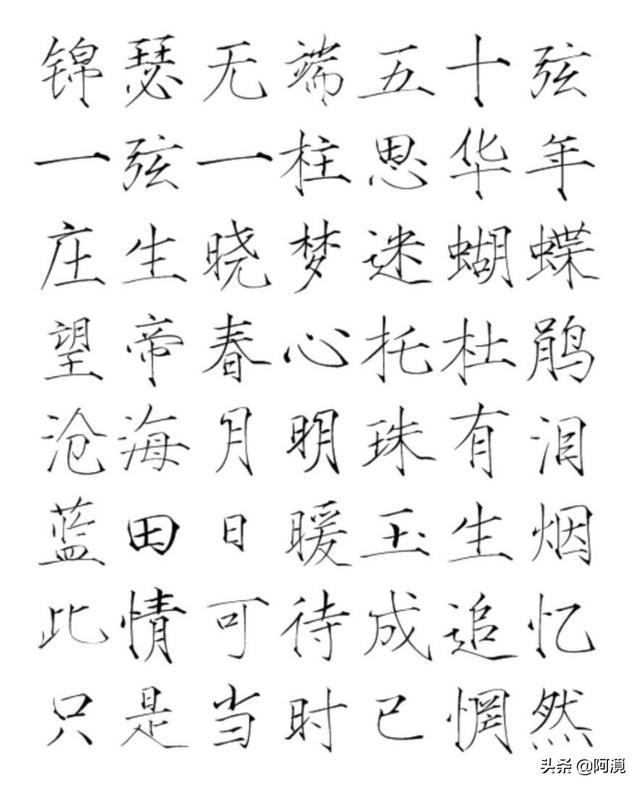 锦瑟无端五十弦
一弦一柱思华年
庄生晓梦迷蝴蝶
望帝春心托杜鹃
沧海月明珠有泪
蓝田日暖玉生烟
此情可待成追忆
只是当时已惘然
头条 @阿濵